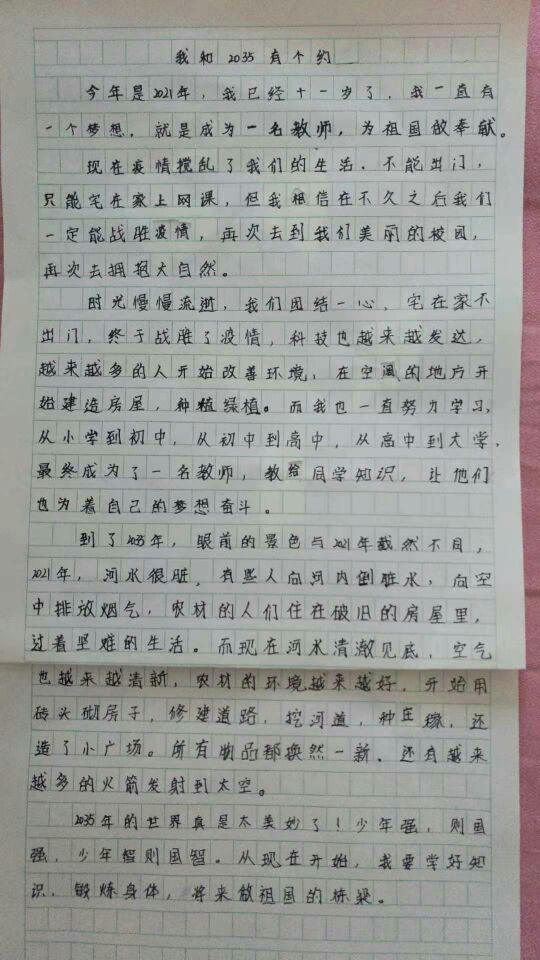 我和2035有个约
今年是2021年，我已经十一岁了，我一直有
一个梦想，就是成为一名教师，为祖国做奉献。
现在疫情搅乱了我们的生活，不能出门，
只能宅在家上网课，但我相信在不久之后我们
一定能战胜疫情，再次去到我们美丽的校园，
再次去拥抱大自然。
时光慢慢流逝，我们团结一心，宅在家不
出门，终于战胜了疫情，科技也越来越发达，
越来越多的人开始改善环境，在空阔的地方开
始建造房屋，种植绿植。而我也一直努力学习，
从小学到初中，从初中到高中，从高中到大学，
最终成为了一名教师，教给同学知识，让他们
也为着自己的梦想奋斗。
到了2035年，眼前的景色与2021年截然不同，
2021年，河水很脏，有些人向河内倒脏水，向空
中排放烟气，农村的人们住在破旧的房屋里，
过着坚难的生活。而现在河水清澈见底，空气
也越来越清新，农村的环境越来越好，开始用
砖头砌房子，修建道路，挖河道，种庄稼，还
造了小广场。所有物品都焕然一新，还有越来
越多的火箭发射到太空。
2035年的世界真是太美妙了！少年强，则国
强，少年智则国智。从现在开始，我要学好知
识，锻炼身体，将来做祖国的栋梁。